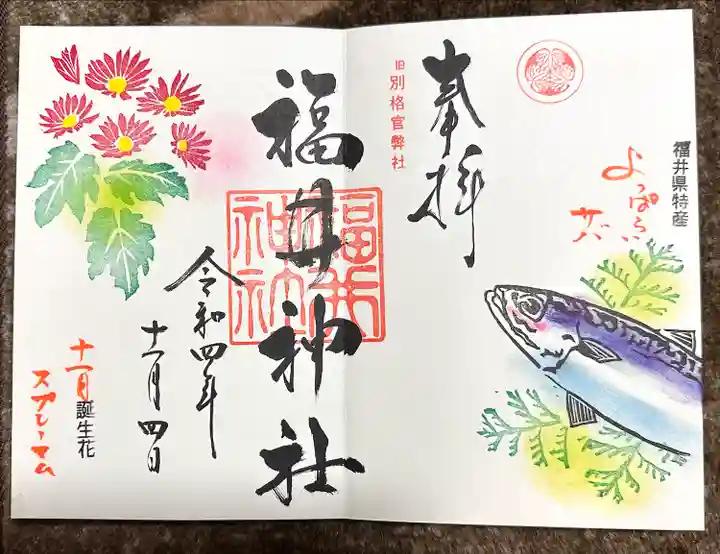 福井県特産
よっぱらい
サバ
奉拝
旧別格官弊社
福井神社
福井
神社
令和四年
十一月四日
十一月誕生花
スプレーマム